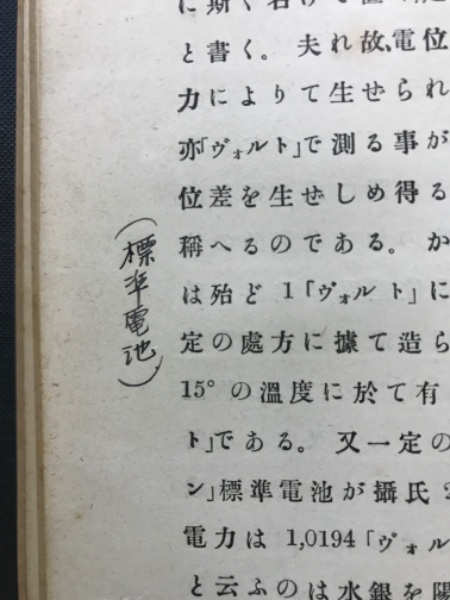 に斯く
と書く。夫れ故、電位
力によりて生せられ
亦「ヴォルト」で測る事が
位差を生せしめ得る
稱へるのである。か
は殆ど1「ヴォルト」に
定の處方に據て造ら
15°の溫度に於て有
ト」である。又一定の
ン」標準電池が攝氏2
電力は1,0194「ヴォル
と云ふのは水銀を陽
(標準電池)